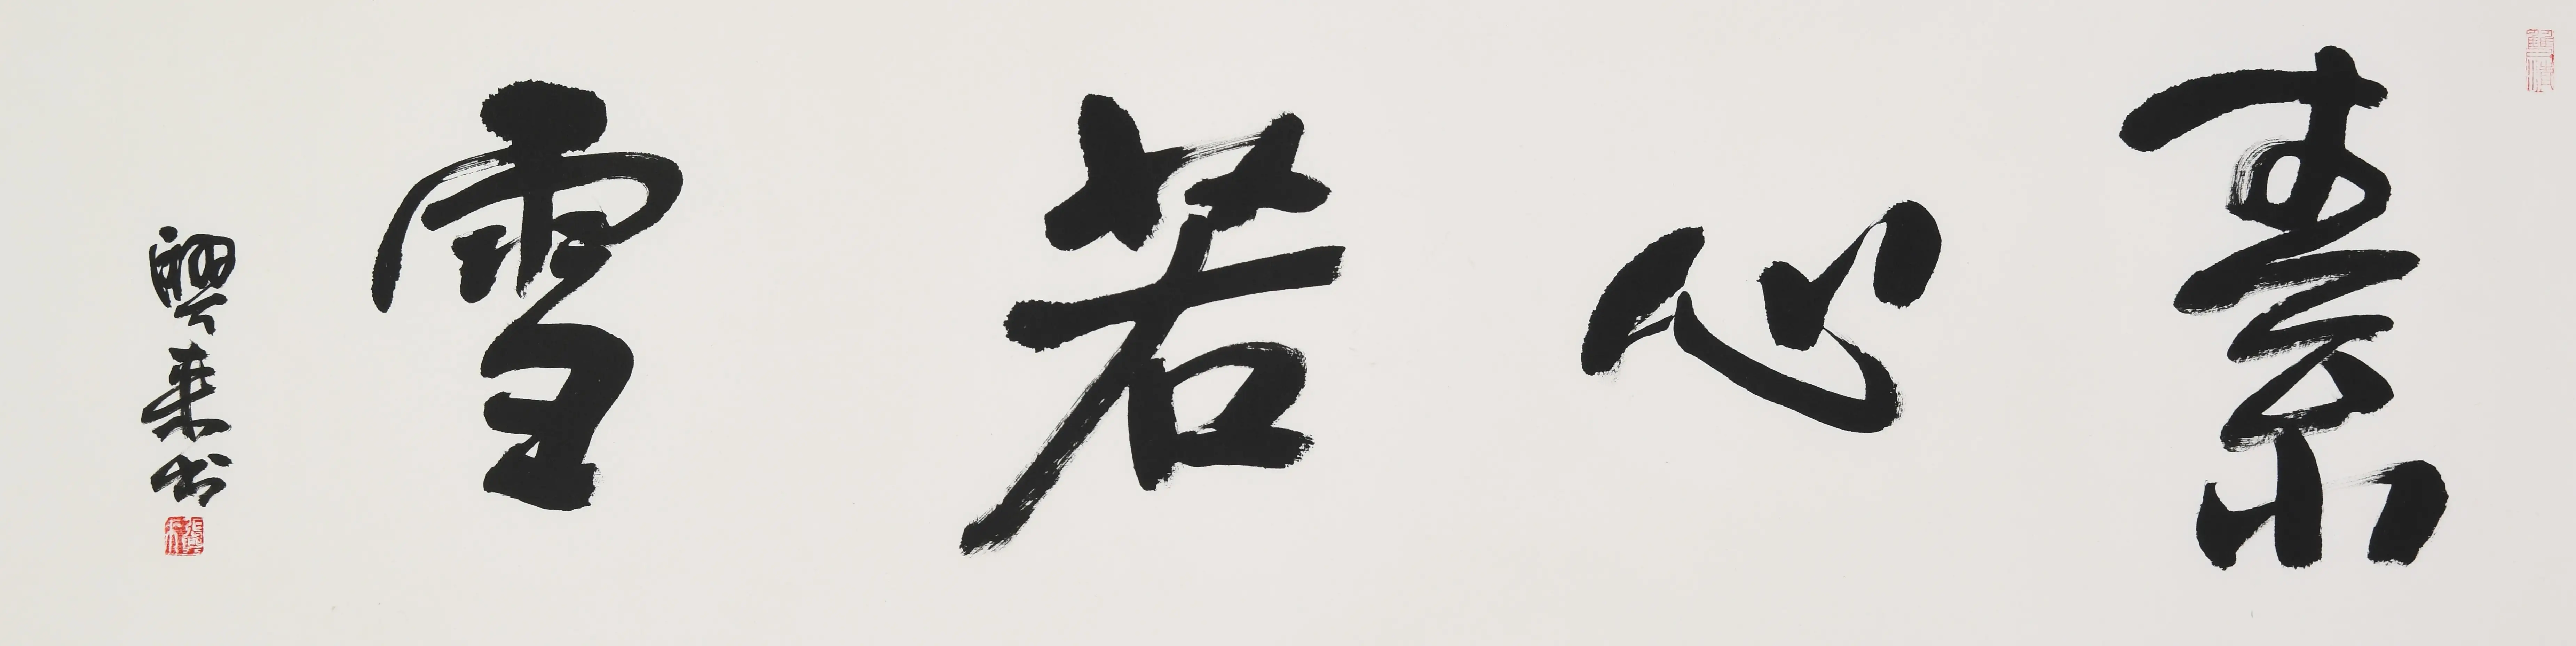 素心若雪
兴来书